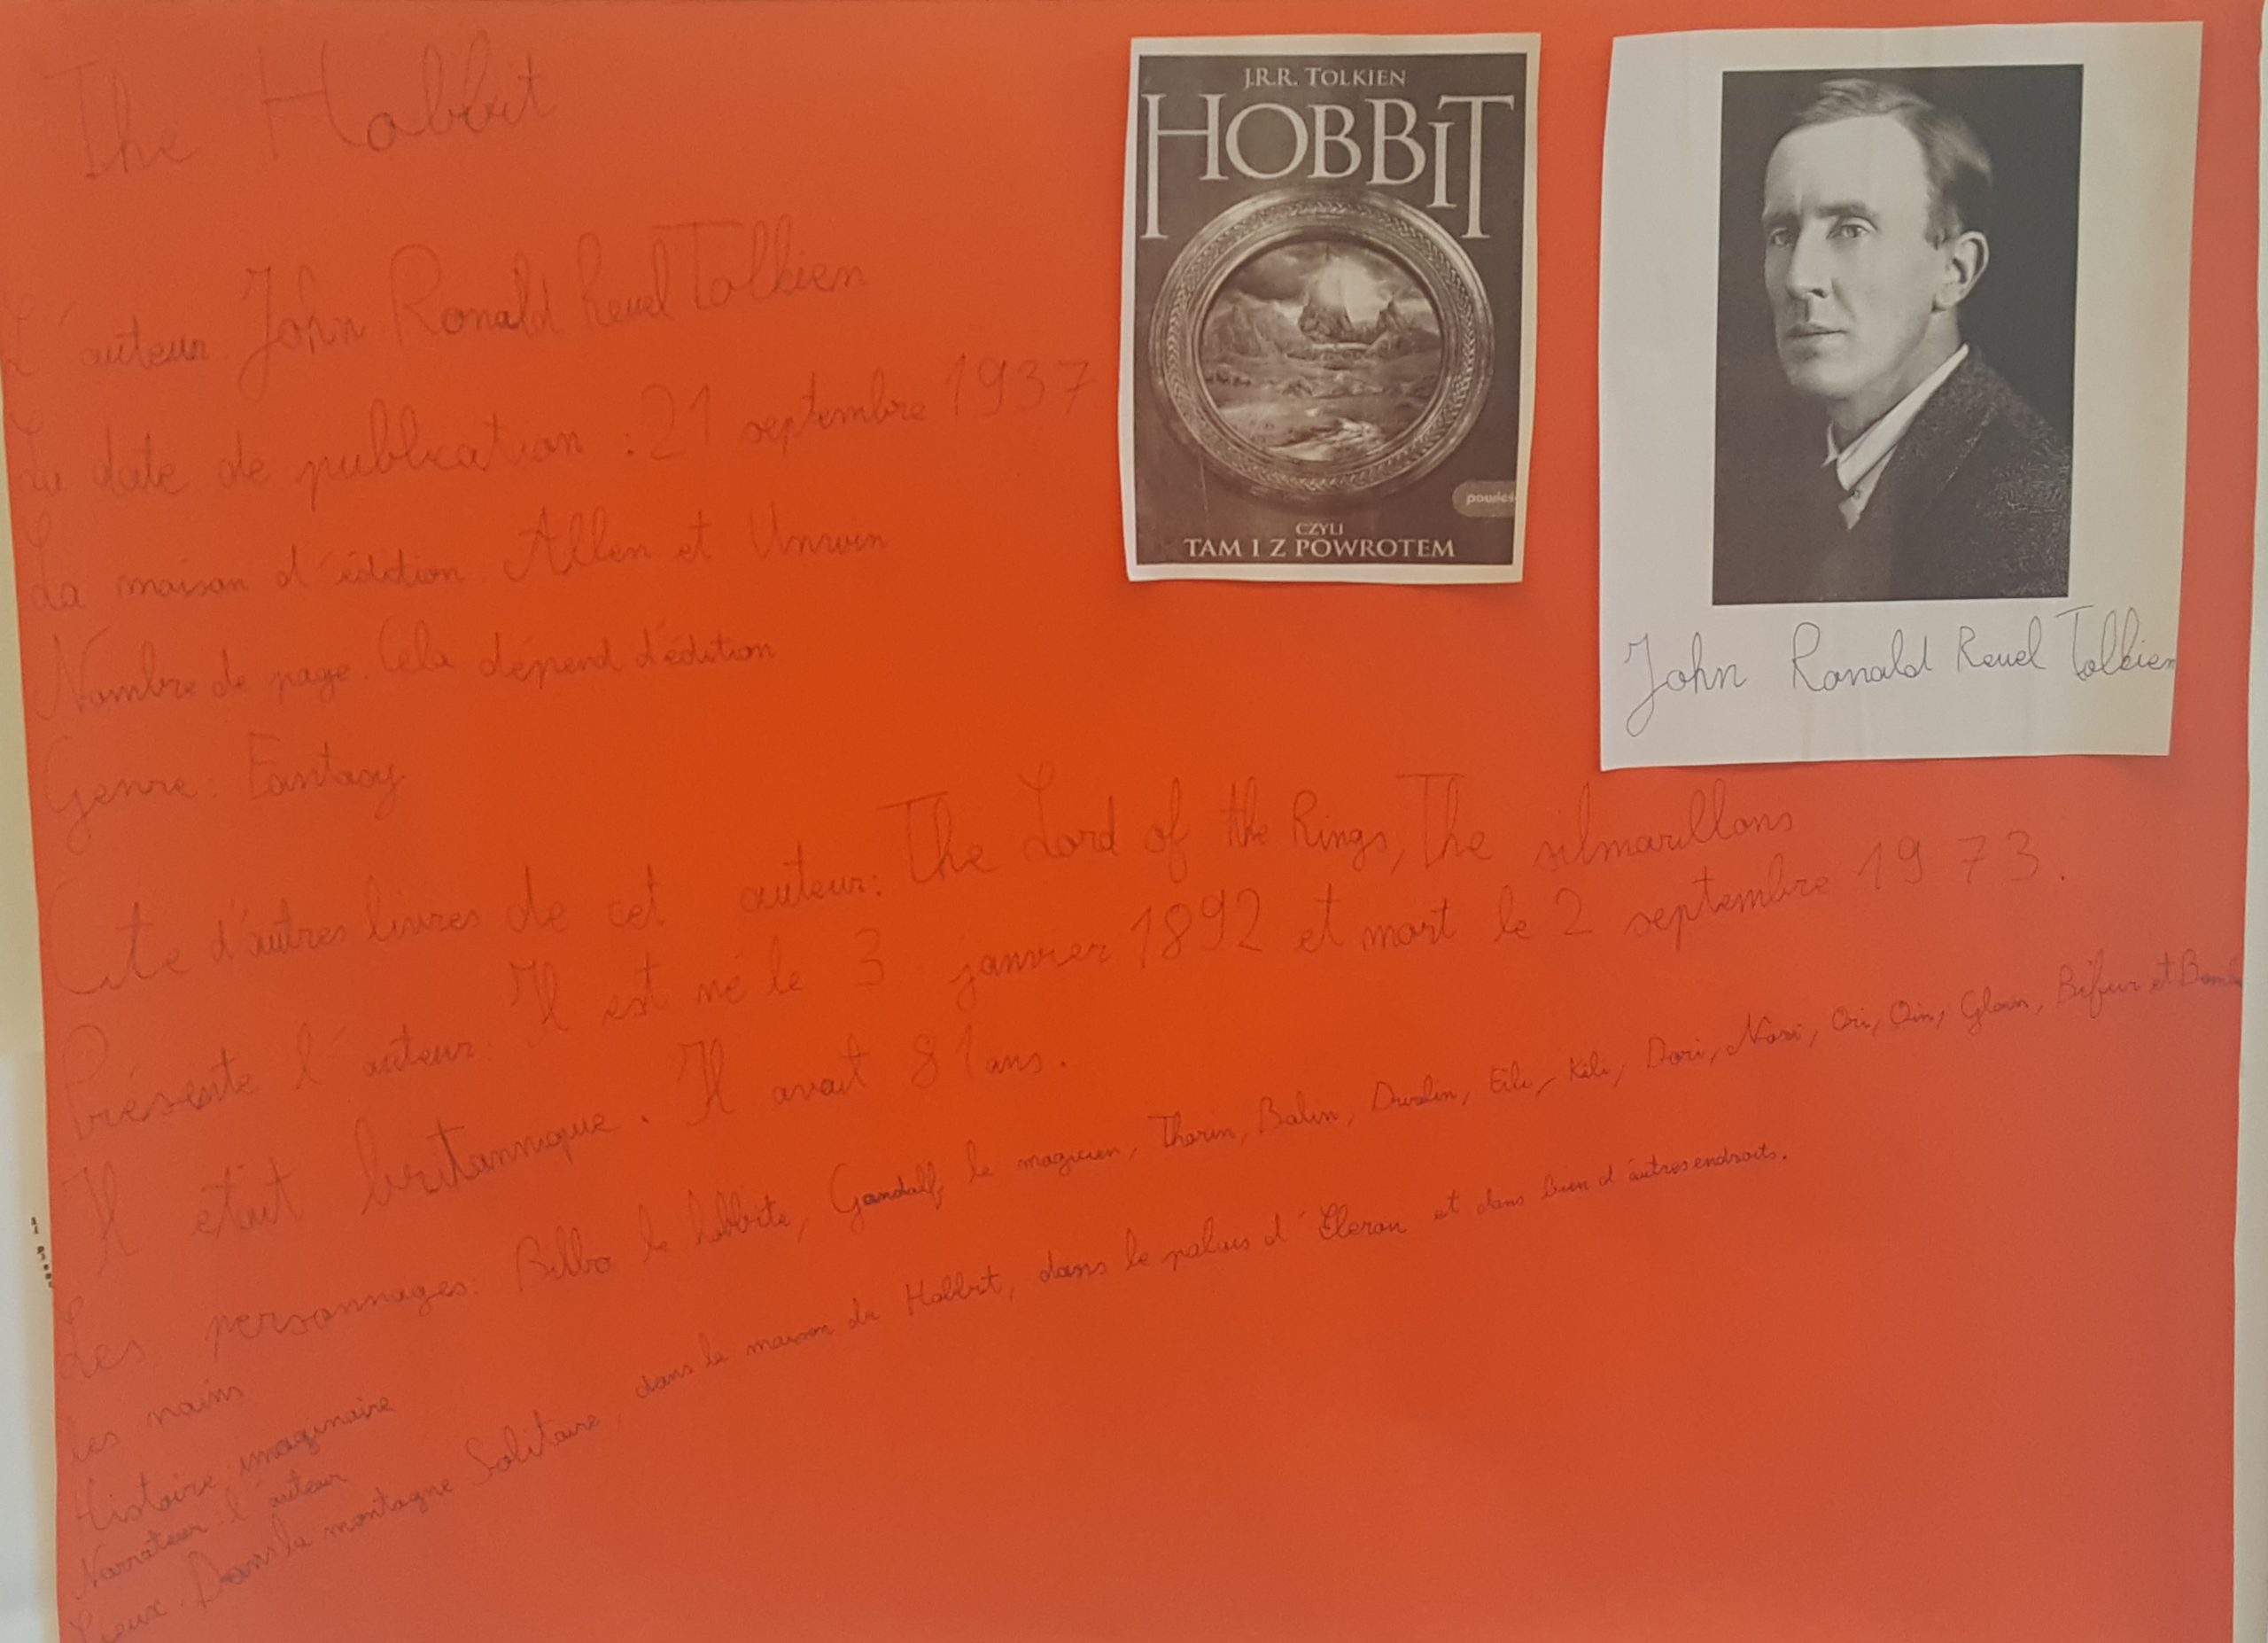 The Hobbit
L'auteur: John Ronald Reuel Tolkien
La date de publication : 21 septembre 1937
La maison d'édition Allen et Unwin
Nombre de page. Cela dépend d'édition
Genre: Fantasy
Cite d'autres livres de cet auteur: The Lord of the Rings, The silmarillons
Présente l'auteur: Il est né le 3 janvier 1892 et mort le 2 septembre 1973.
Il était britannique. Il avait 81 ans.
Les personnages: Bilbo le hobbite, Gandalf, le magicien, Thorin, Balin, Dwalin, Fili, Kili, Dori, Nori, Ori, Oin, Gloin, Bifur et
les nains
Histoire: imaginaire
Narrateur: l'auteur
Lieux: Dans la montagne Solitaire, dans la maison de Hobbit, dans le palais d' et dans bien d'autres endroits.
J.R.R. TOLKIEN
HOBBIT
powieś
CZYLI
TAM I Z POWROTEM
John Ronald Reuel Tolkien